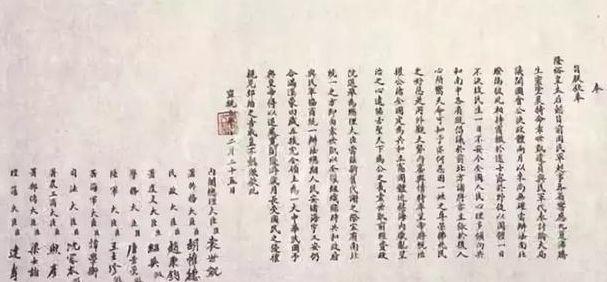 奉
旨朕欽奉
隆裕皇太后懿旨前因民軍起事各省響應九夏沸騰
生靈塗炭特命袁世凱遣員與民軍代表討論大局
議開國會公決政體兩月以來尚無確當辦法南北
暌隔彼此相持商輟於途士露於野徒以國體一日
不決故民生一日不安今全國人民心理多傾向共
和南中各省既倡議於前北方諸將亦主張於後人
心所嚮天命可知予亦何忍因一姓之尊榮拂兆民
之好惡是用外觀大勢內審輿情特率皇帝將統治
權公諸全國定為共和立憲國體近慰海內厭亂望
治之心遠協古聖天下為公之義袁世凱前經資政
院選舉為總理大臣當茲新舊代謝之際宜有南北
統一之方即由袁世凱以全權組織臨時共和政府
與民軍協商統一辦法總期人民安堵海宇乂安仍
合滿漢蒙回藏五族完全領土為一大中華民國予
與皇帝得以退處寬閒優游歲月長受國民之優禮
親見郅治之告成豈不懿歟欽此
宣統三年十二月二十五日
內閣總理大臣臣袁世凱
署外務大臣臣胡惟德
民政大臣臣趙秉鈞
署度支大臣臣紹英
學務大臣臣唐景崇
陸軍大臣臣王士珍
署海軍大臣臣譚學衡
司法大臣臣沈家本
署農工商大臣臣熙彥
署郵傳大臣臣梁士詒
理藩大臣臣達壽